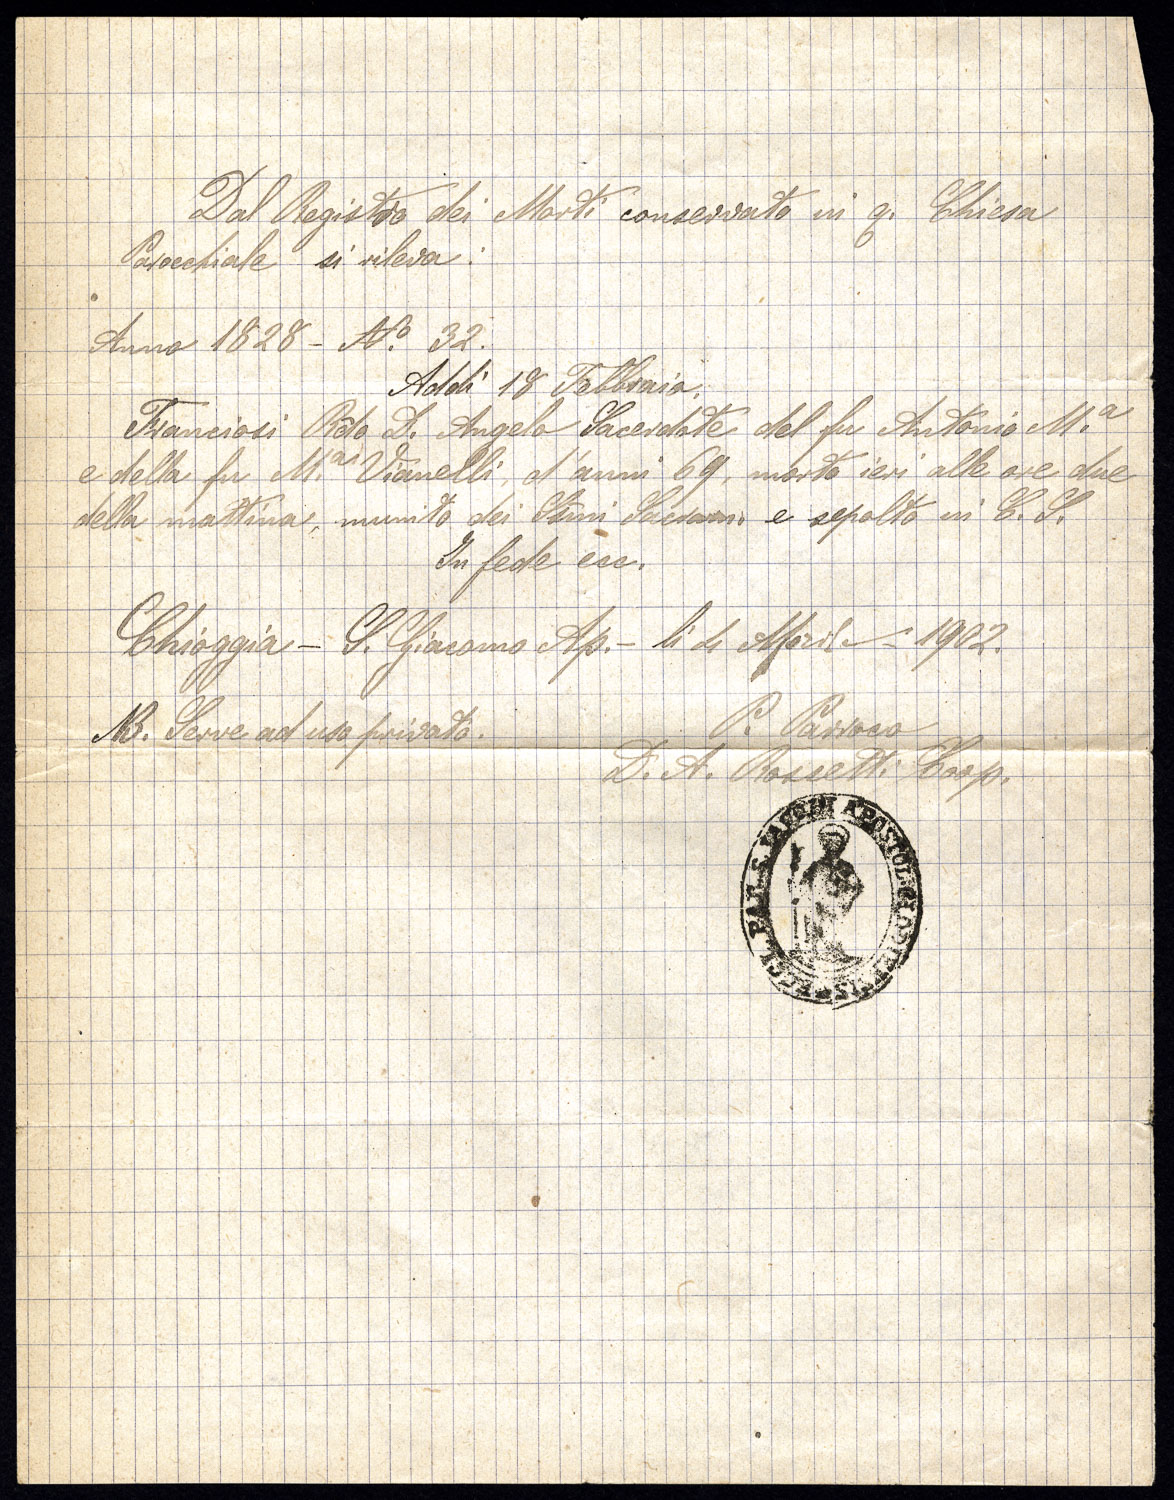 Dal Registro dei Morti conservato in q. Chiesa
Parocchiale si rileva:
Anno 1828 – N.o 32.
Addì 18 Febbraio.
Franciosi Rdo D. Angelo Sacerdote del fu Antonio M.a
e della fu M.a Vianelli, d'anni 69, morto ieri alle ore due
della mattina, munito dei Ssmi Sacram. e sepolto in C. S.
In fede ecc.
Chioggia – S. Giacomo Ap. – li 4 Aprile – 1902.
NB. Serve ad uso privato.
P. Parroco
D. A. Rossetti Coop.
ECCL. PAR. S. JACOBI APOSTOL. CLODIENSIS